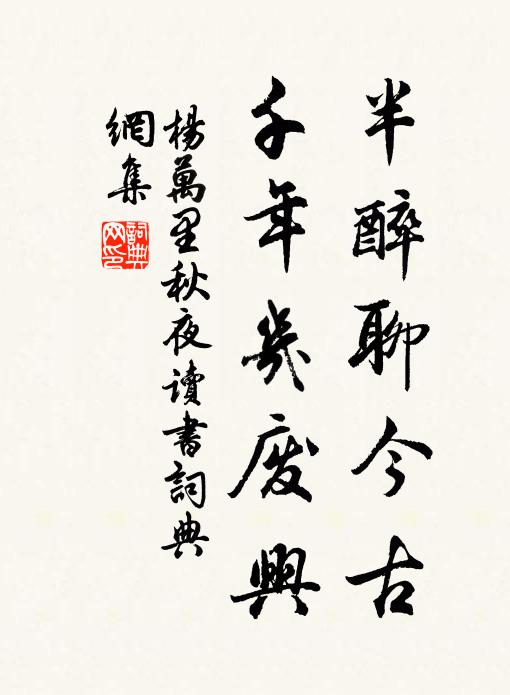 半醉聊今古
千年幾廢興
楊萬里秋夜讀書詞典
網集
詞典
网印